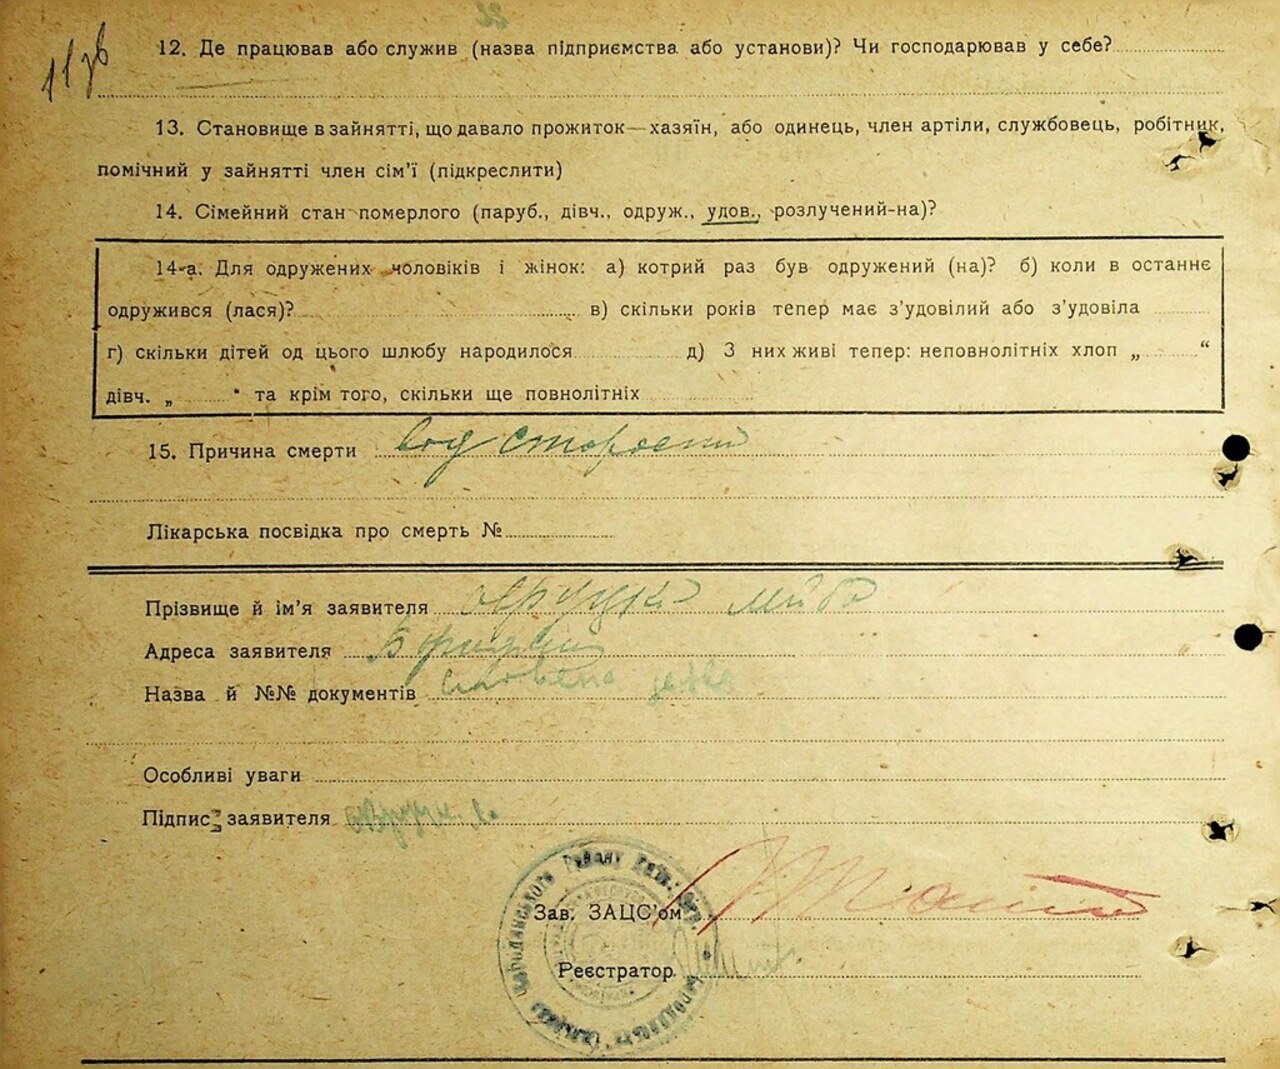 11 зв
12. Де працював або служив (назва підприємства або установи)? Чи господарював у себе?
13. Становище в зайнятті, що давало прожиток—хазяїн, або одинець, член артіли, службовець, робітник,
помічний у зайнятті член сім’ї (підкреслити)
14. Сімейний стан померлого (паруб., дівч., одруж., удов., розлучений-на)?
14-а. Для одружених чоловіків і жінок: а) котрий раз був одружений (на)? б) коли в останнє
одружився (лася)? в) скільки років тепер має з’удовілий або з’удовіла
г) скільки дітей од цього шлюбу народилося д) З них живі тепер: неповнолітніх хлоп „ “
дівч. „ “ та крім того, скільки ще повнолітніх
15. Причина смерти вод старости
Лікарська посвідка про смерть №
Прізвище й ім’я заявителя
Адреса заявителя
Назва й №№ документів
Особливі уваги
Підпис заявителя
Зав. ЗАЦС’ом
Реєстратор